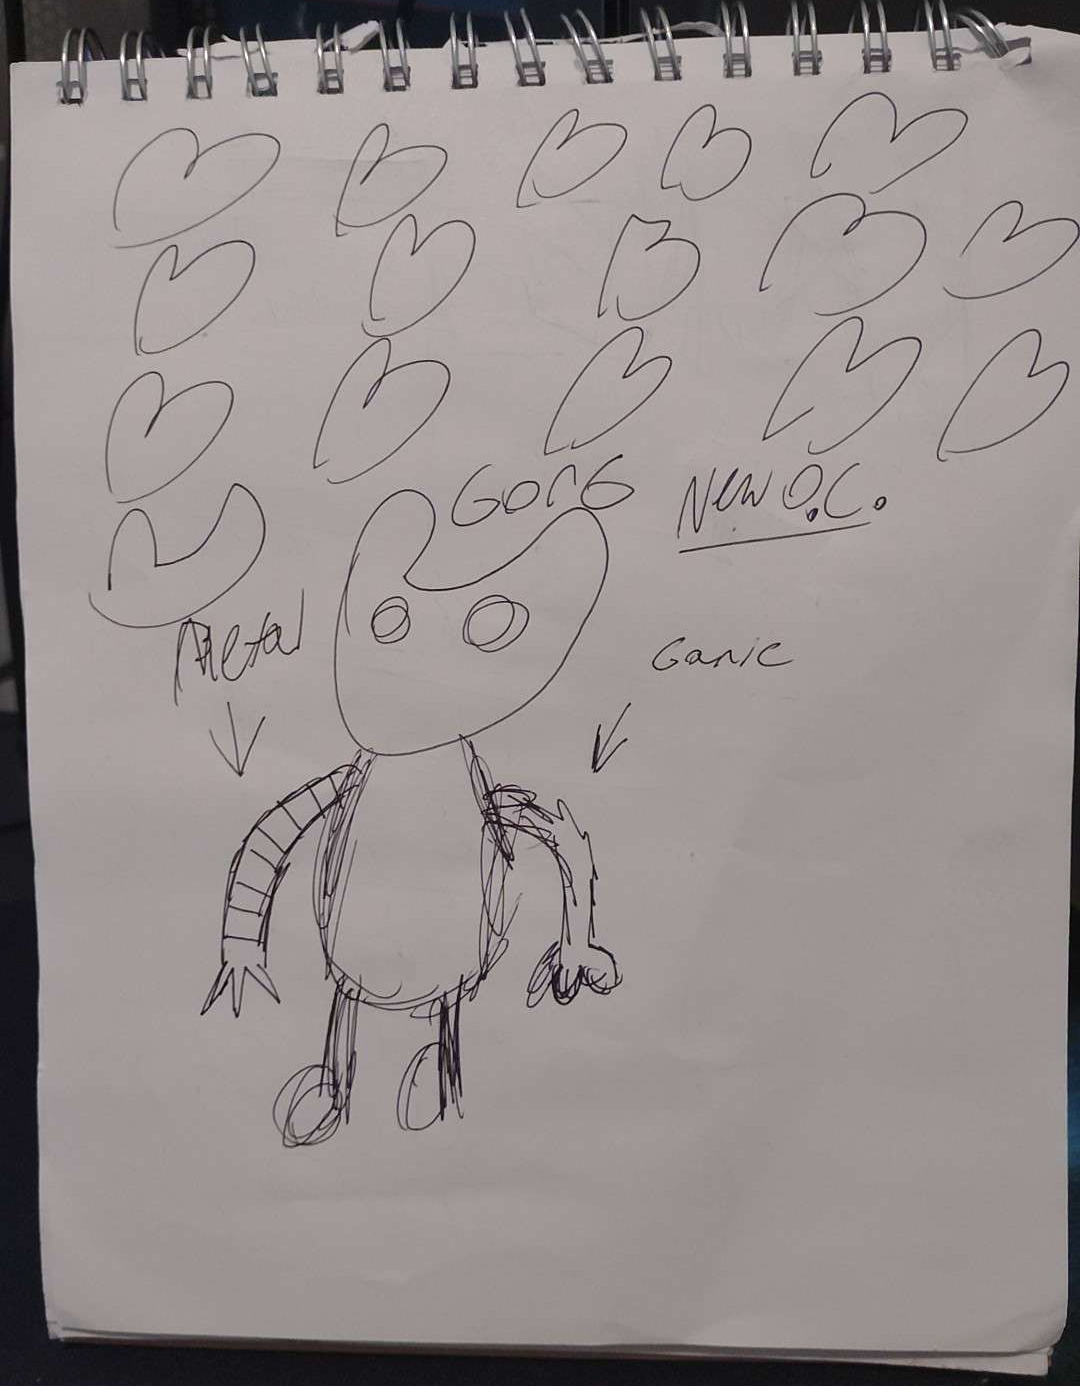 GorG
New O.C.
Metal
Ganic